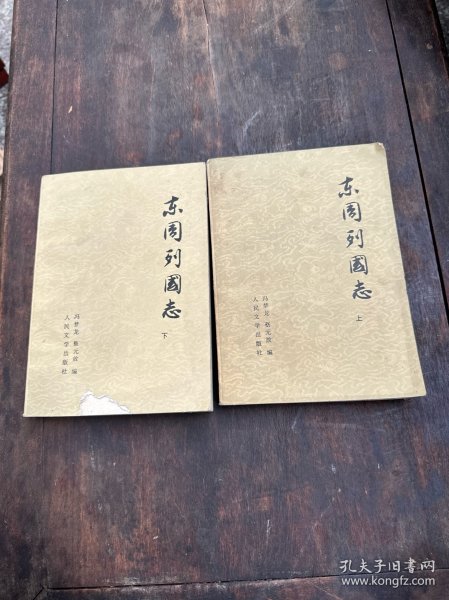 东周列國志
下
冯梦龙 蔡元放 编
人民文学出版社
东周列國志
上
冯梦龙 蔡元放 编
人民文学出版社
孔夫子旧书网
www.kongfz.com